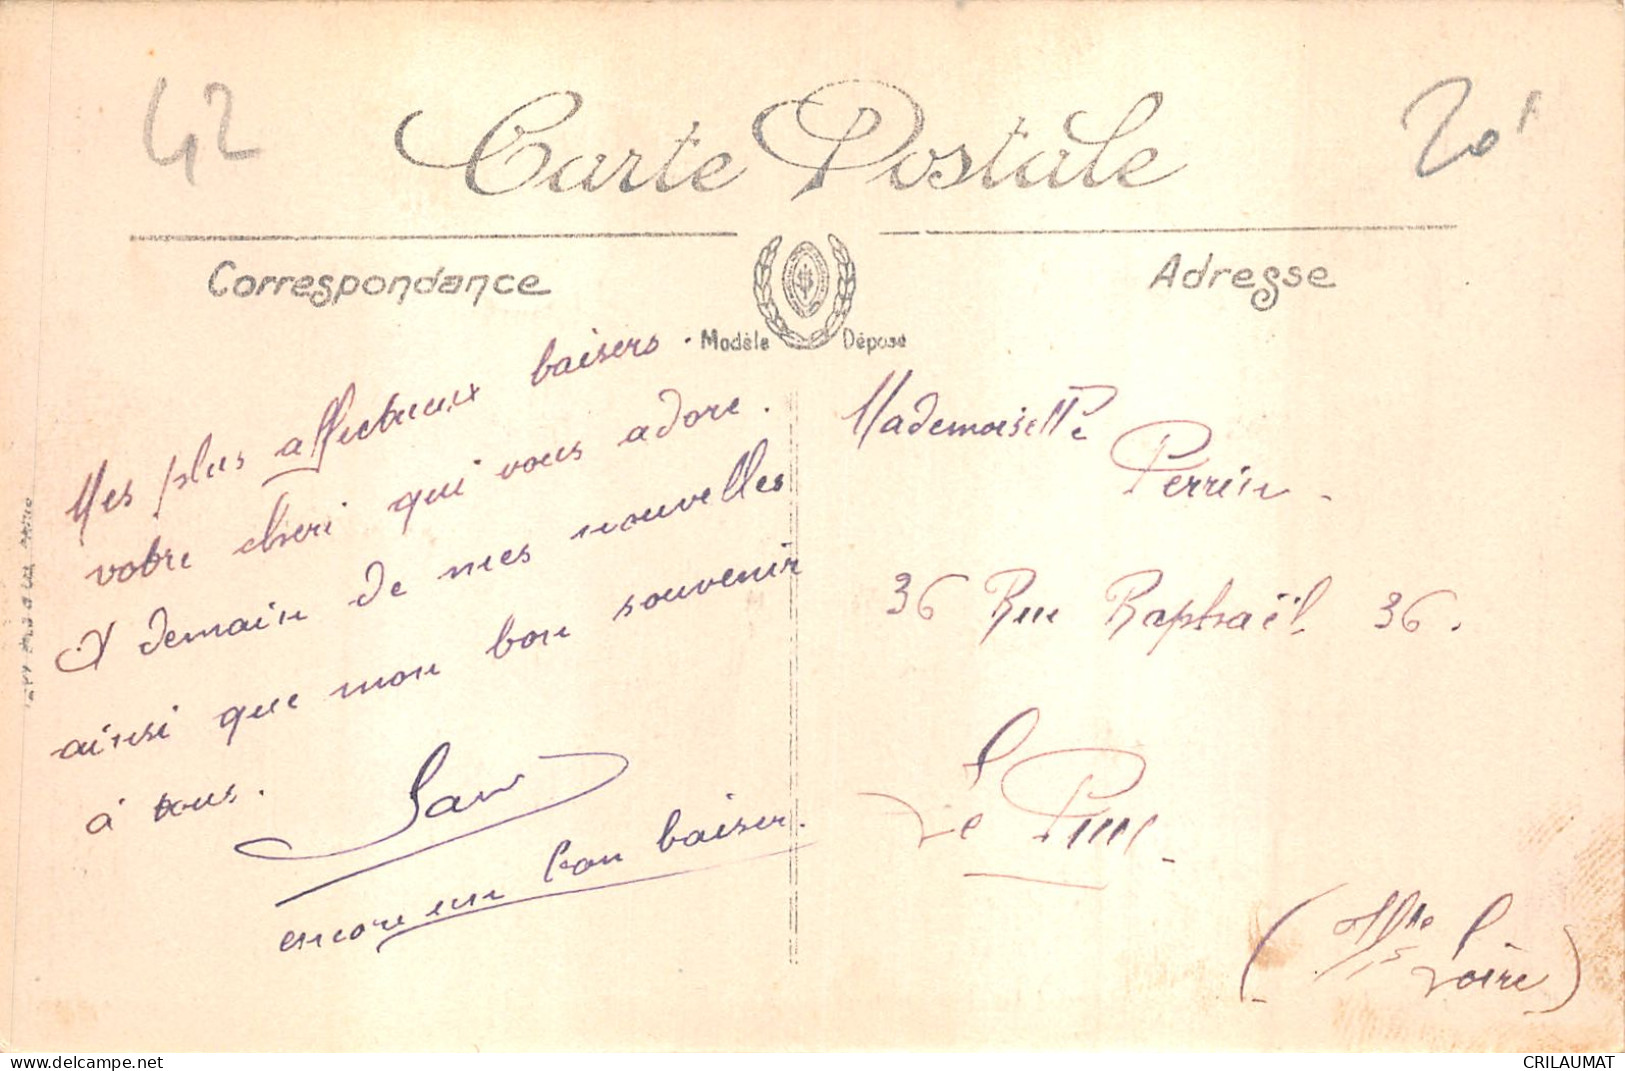 42
20
Carte Postale
Correspondance
Adresse
Modèle Déposé
Mes plus affectueux baisers.
votre cheri qui vous adore.
A demain de mes nouvelles
ainsi que mon bon souvenir
à tous.
encore un bon baiser.
Mademoiselle
Perrin
36 Rue Raphaël 36.
Le Puy
(Hte Loire)
CRILAUMAT